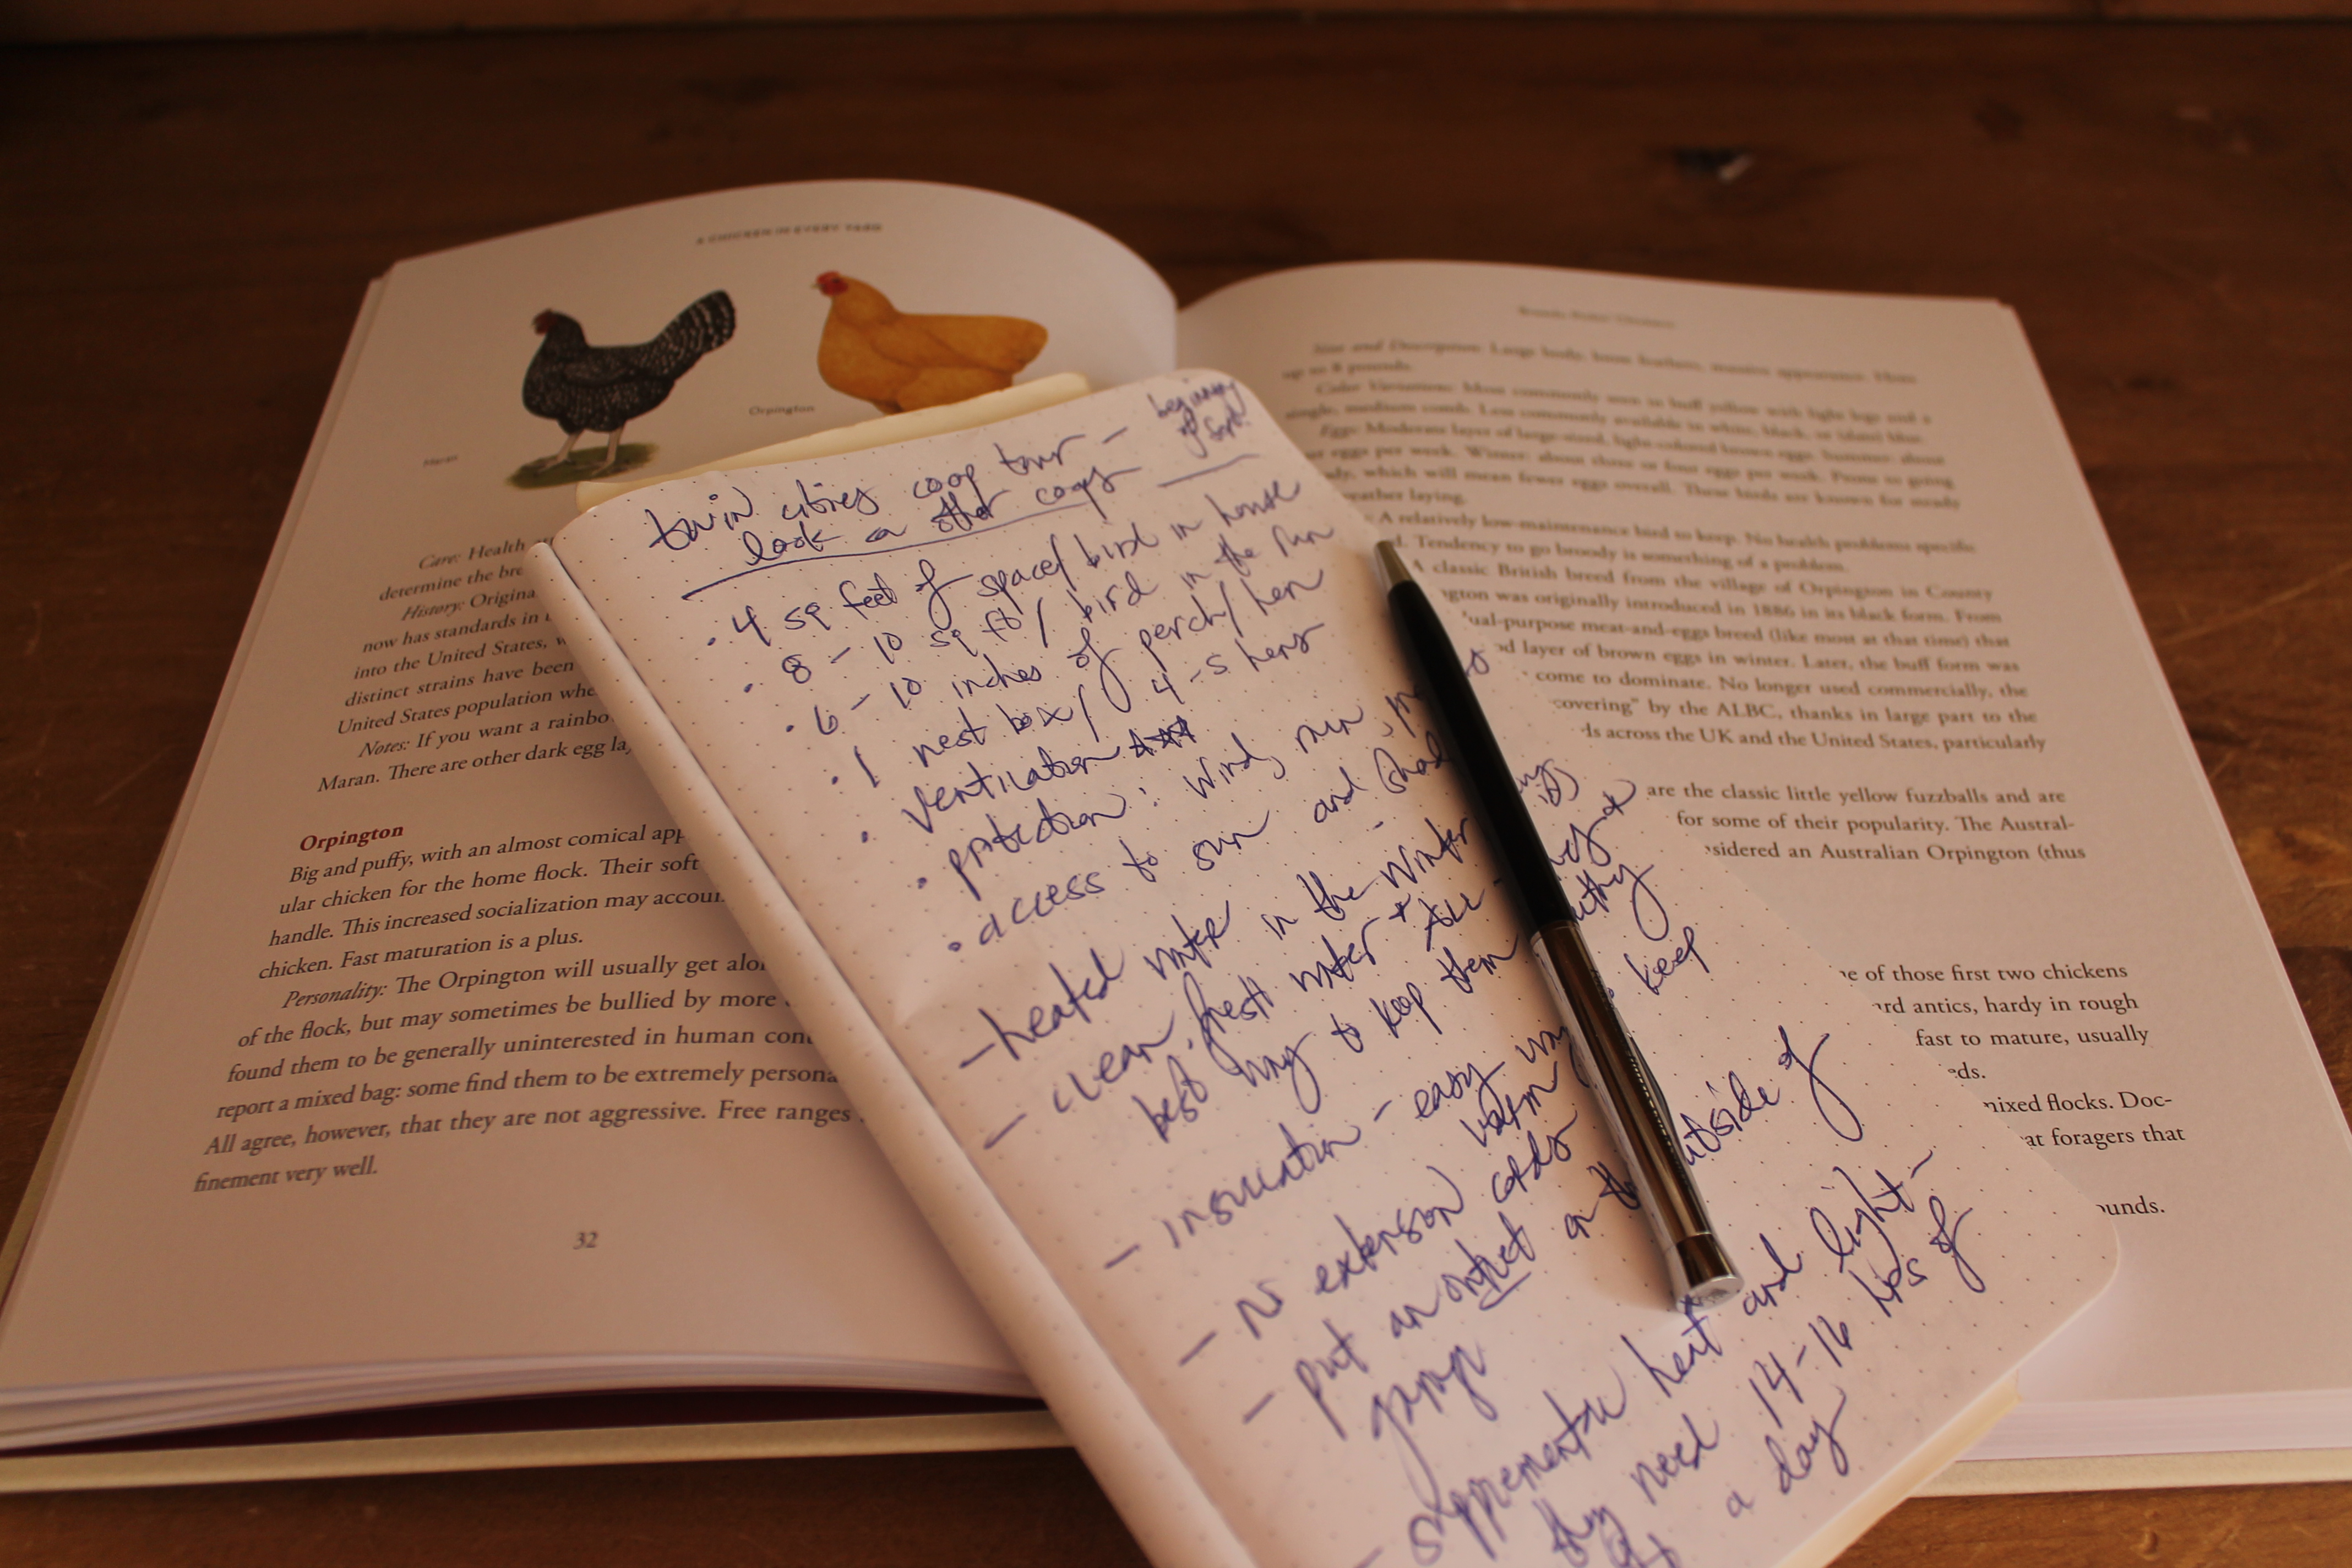 A CHICKEN IN EVERY YARD
Maran
Orpington
Care: Health
determine the bre
History: Origina
now has standards in
into the United States,
distinct strains have been
United States population whe
Notes: If you want a rainbo
Maran. There are other dark egg la
Orpington
Big and puffy, with an almost comical app
ular chicken for the home flock. Their soft
handle. This increased socialization may accoun
chicken. Fast maturation is a plus.
Personality: The Orpington will usually get alo
of the flock, but may sometimes be bullied by more
found them to be generally uninterested in human con
report a mixed bag: some find them to be extremely persona
All agree, however, that they are not aggressive. Free ranges
finement very well.
32
twin cities coop tour - beginning of Sept.
look @ other coops
• 4 sq feet of space/bird in house
• 8-10 sq ft/bird in the run
• 6-10 inches of perch/hen
• 1 nest box/4-5 hens
• ventilation ***
• protection: wind,
• access to sun and shad
- heated water in the winter
- clean, fresh water +
best way to keep them
- insulation - easy way keep
warm
- no extension cords
- put an outlet on th utside of
garage
- supplemental heat and light -
they need 14-16 hrs of
a day
Size and Description: Large body, loose feathers, massive appearance. Hens
up to 8 pounds.
Color Variations: Most commonly seen in buff yellow with light legs and a
single, medium comb. Less commonly available in white, black, or (date) blue.
Eggs: Moderate layer of large-sized, light-colored brown eggs. Summer: about
eggs per week. Winter: about three or four eggs per week. Prone to going
dy, which will mean fewer eggs overall. These birds are known for steady
eather laying.
A relatively low-maintenance bird to keep. No health problems specific
d. Tendency to go broody is something of a problem.
A classic British breed from the village of Orpington in County
ngton was originally introduced in 1886 in its black form. From
ual-purpose meat-and-eggs breed (like most at that time) that
od layer of brown eggs in winter. Later, the buff form was
come to dominate. No longer used commercially, the
covering" by the ALBC, thanks in large part to the
ds across the UK and the United States, particularly
are the classic little yellow fuzzballs and are
for some of their popularity. The Austral-
sidered an Australian Orpington (thus
e of those first two chickens
rd antics, hardy in rough
fast to mature, usually
eds.
mixed flocks. Doc-
at foragers that
ounds.